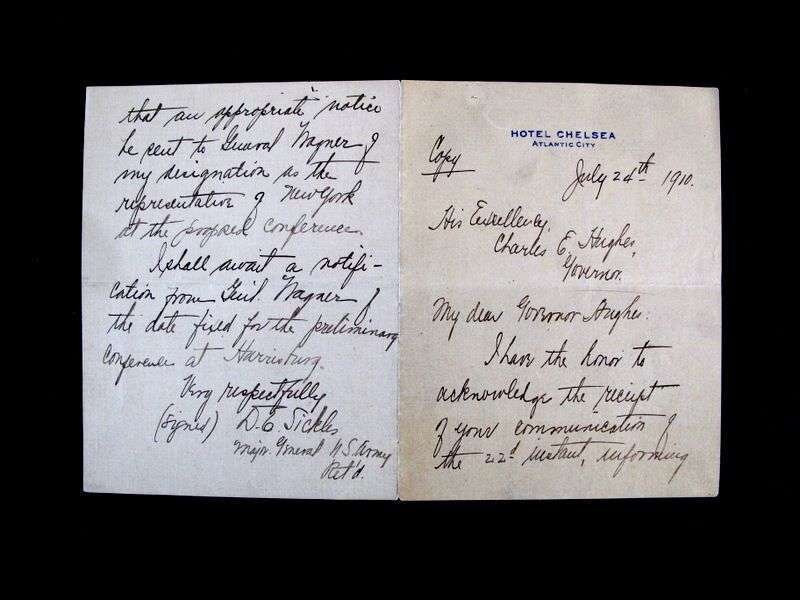 HOTEL CHELSEA
ATLANTIC CITY
Copy
July 24th 1910.
His Excellency,
Charles E. Hughes,
Governor.
My dear Governor Hughes:
I have the honor to
acknowledge the receipt
of your communication of
the 22d instant, informing
that an appropriate notice
be sent to General Wagner of
my designation as the
representative of New York
at the proposed conference.
I shall await a notifi-
cation from Gen'l Wagner of
the date fixed for the preliminary
conference at Harrisburg.
Very respectfully
(signed) D. E. Sickles
Major General U S Army
Ret'd.